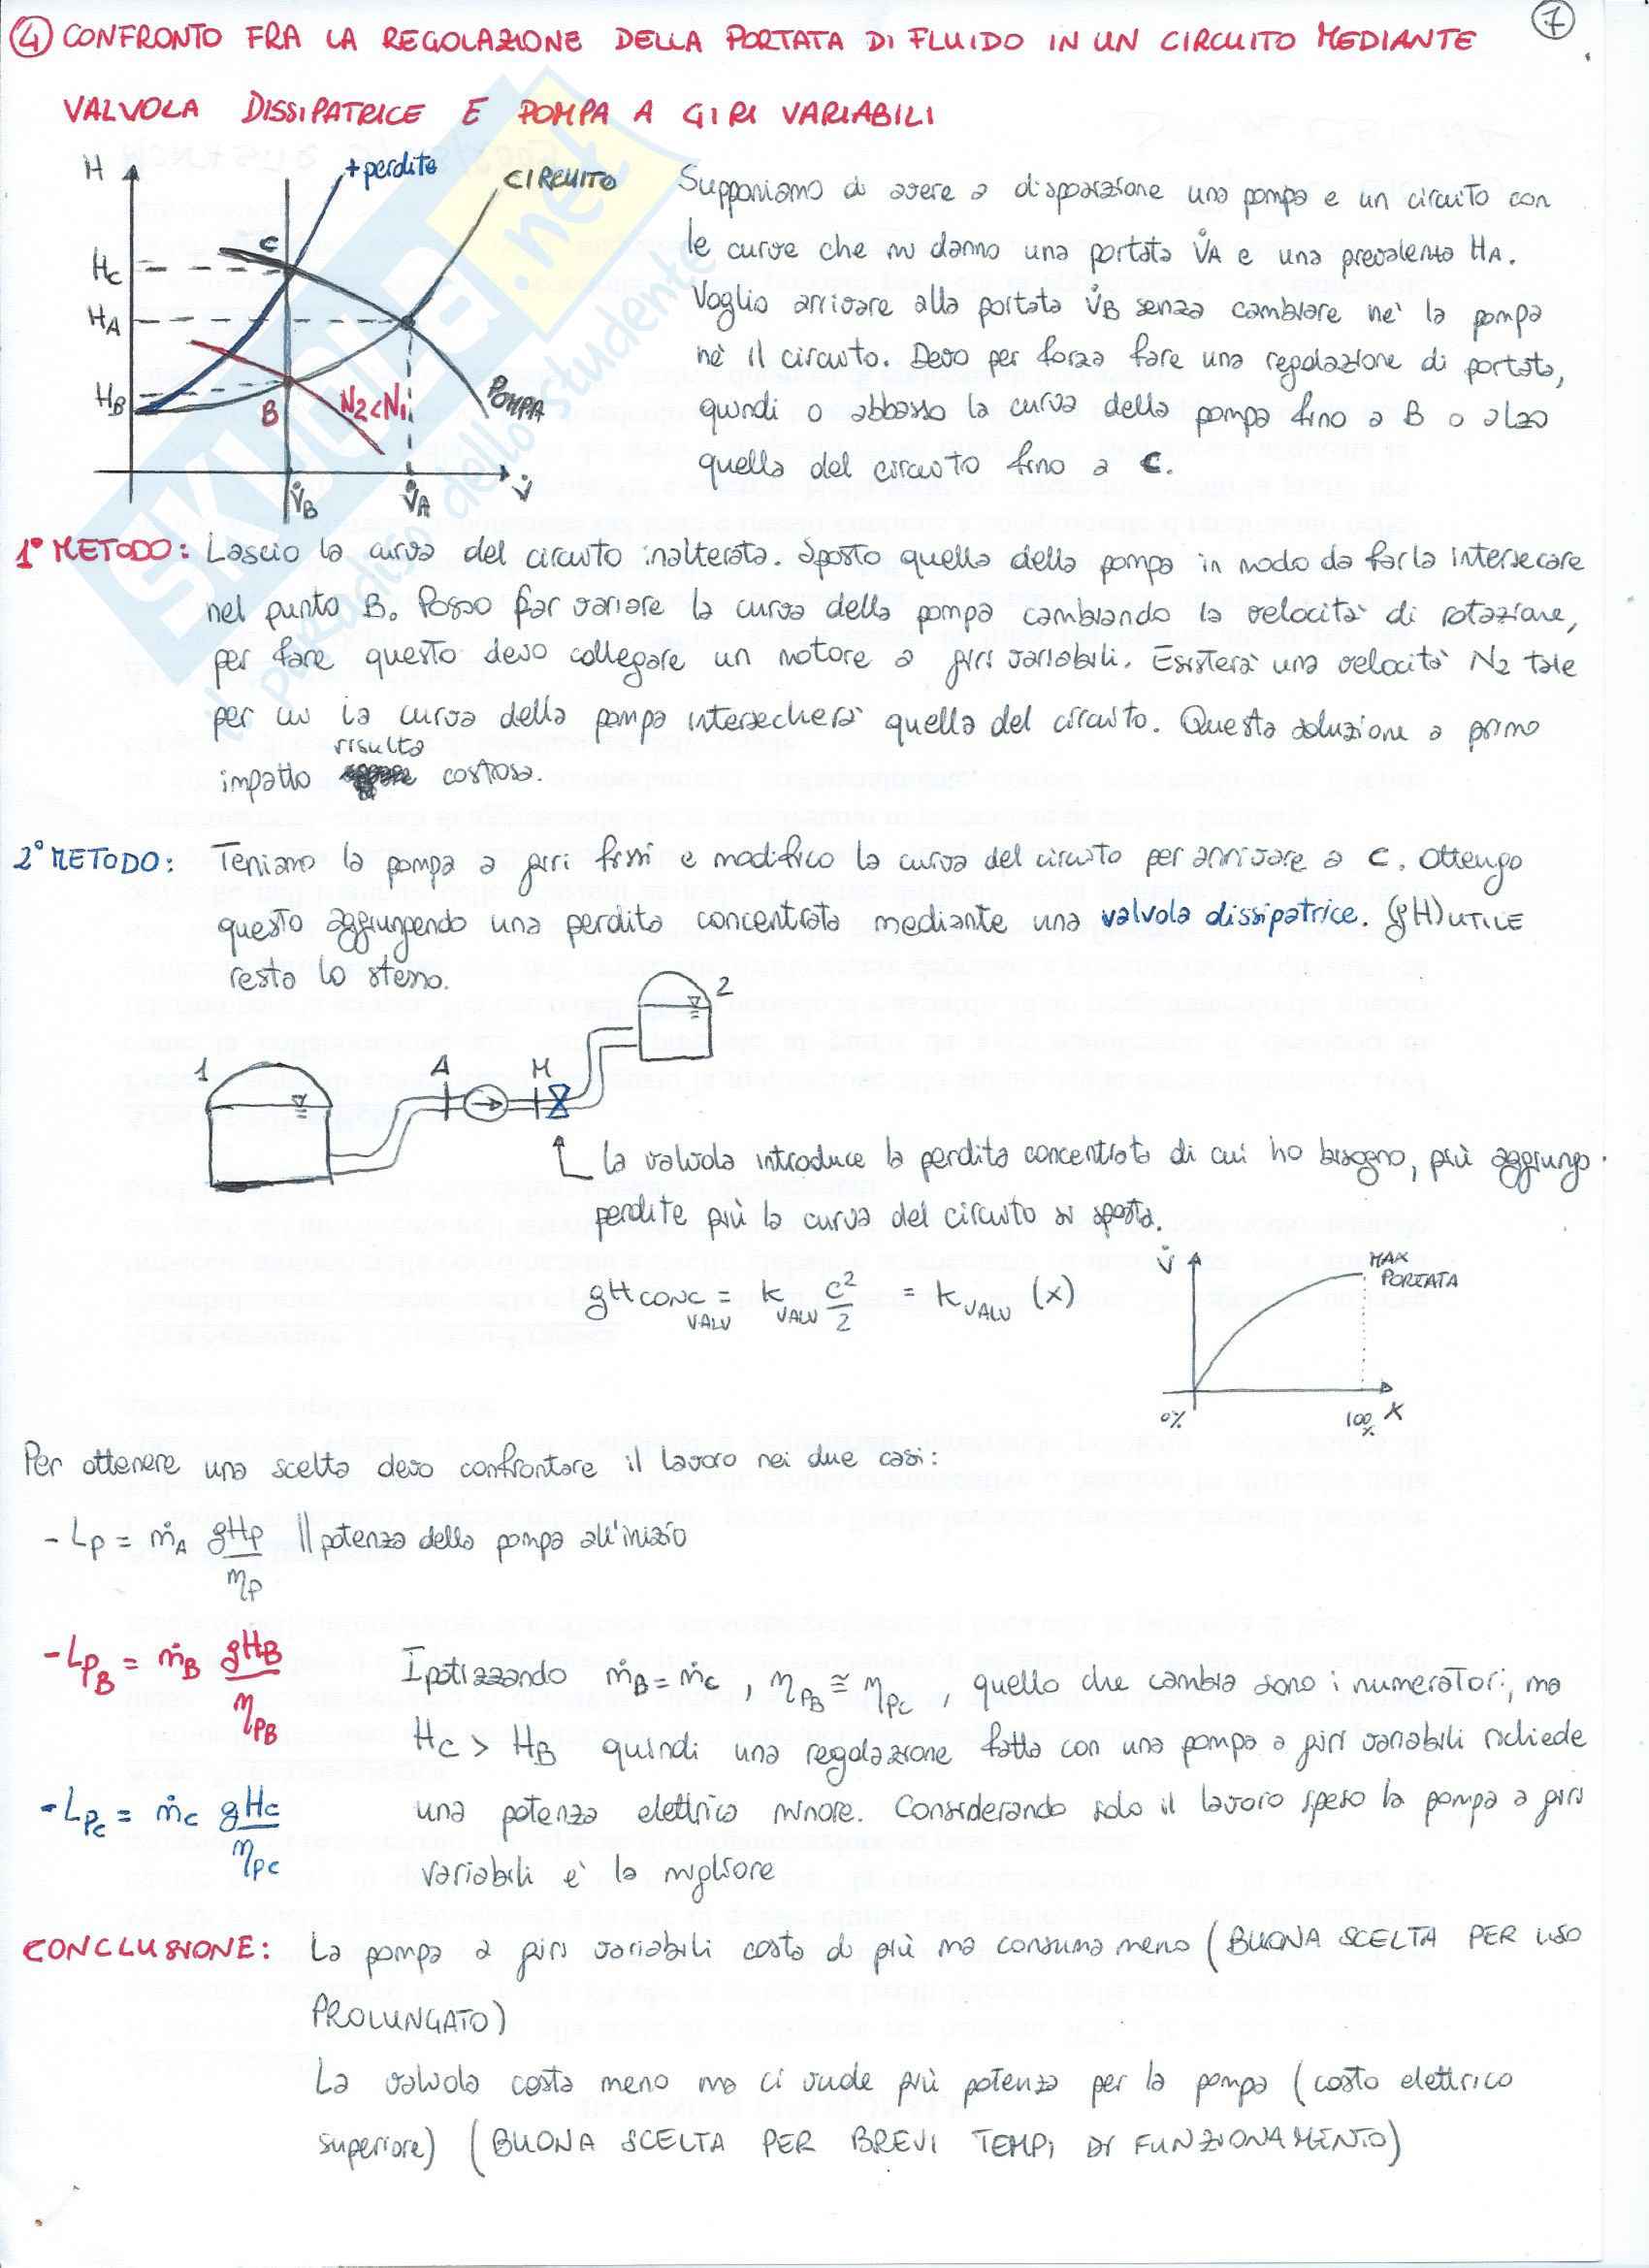 ④ CONFRONTO FRA LA REGOLAZIONE DELLA PORTATA DI FLUIDO IN UN CIRCUITO MEDIANTE
7
VALVOLA DISSIPATRICE E POMPA A GIRI VARIABILI
H
+perdite
CIRCUITO
C
HC
HA
HB
B
N2<N1
POMPA
V̇B
V̇A
V̇
Supponiamo di avere a disposizione una pompa e un circuito con
le curve che mi danno una portata V̇A e una prevalenza HA.
Voglio arrivare alla portata V̇B senza cambiare ne' la pompa
nè il circuito. Devo per forza fare una regolazione di portata,
quindi o abbasso la curva della pompa fino a B o alzo
quella del circuito fino a C.
1° METODO: Lascio la curva del circuito inalterata. Sposto quella della pompa in modo da farla intersecare
nel punto B. Posso far variare la curva della pompa cambiando la velocità di rotazione,
per fare questo devo collegare un motore a giri variabili. Esisterà una velocità N2 tale
per cui la curva della pompa intersecherà quella del circuito. Questa soluzione a primo
impatto risulta costosa.
2° METODO: Teniamo la pompa a giri fissi e modifico la curva del circuito per arrivare a C. Ottengo
questo aggiungendo una perdita concentrata mediante una valvola dissipatrice. (gH)UTILE
resta lo stesso.
1
A
M
2
la valvola introduce la perdita concentrata di cui ho bisogno, più aggiungo
perdite più la curva del circuito si sposta.
gHconc VALV = kVALV c²/2 = kVALV (x)
V̇
MAX PORTATA
0%
100%
X
Per ottenere una scelta devo confrontare il lavoro nei due casi:
- LP = ṁA gHP/ηP || potenza della pompa all'inizio
- LPB = ṁB gHB/ηPB
Ipotizzando ṁB = ṁC, ηPB ≅ ηPC, quello che cambia sono i numeratori, ma
HC > HB quindi una regolazione fatta con una pompa a giri variabili richiede
- LPC = ṁC gHC/ηPC
una potenza elettrica minore. Considerando solo il lavoro speso la pompa a giri
variabili e' la migliore
CONCLUSIONE: La pompa a giri variabili costa di più ma consuma meno (BUONA SCELTA PER USO
PROLUNGATO)
La valvola costa meno ma ci vuole più potenza per la pompa (costo elettrico
superiore) (BUONA SCELTA PER BREVI TEMPI DI FUNZIONAMENTO)
SKUOLA.net
il paradiso dello studente